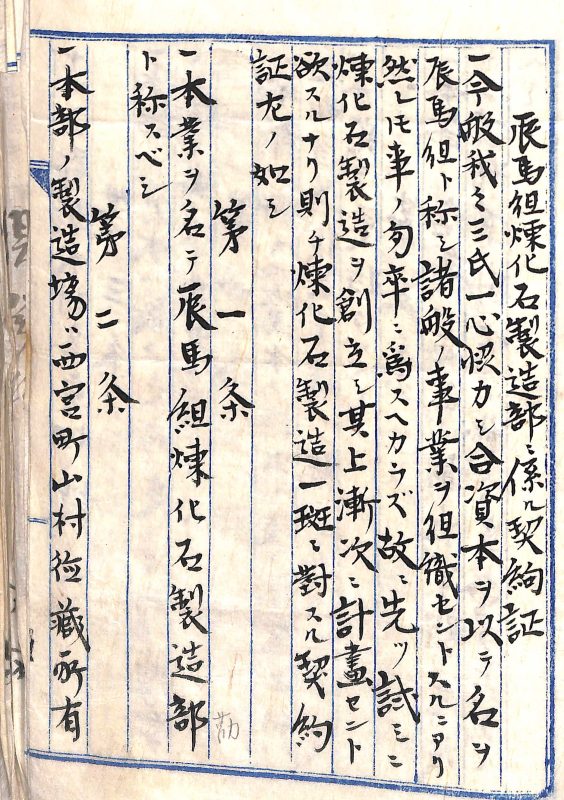 辰馬組煉化石製造部ニ係ル契約証
一今般我々三氏一心協力シ合資本ヲ以テ名ヲ
辰馬組ト称シ諸般ノ事業ヲ組織セントスルニアリ
然レ𪜈事ノ匆卒ニ為スヘカラズ故ニ先ツ試ミニ
煉化石製造ヲ創立シ其上漸次ニ計畫セント
欲スルナリ則チ煉化石製造一斑ニ對スル契約
証左ノ如シ
第一条
一本業ヲ名テ辰馬組煉化石製造部
ト称スベシ
第二条
一本部ノ製造場ハ西宮町山村徳蔵所有